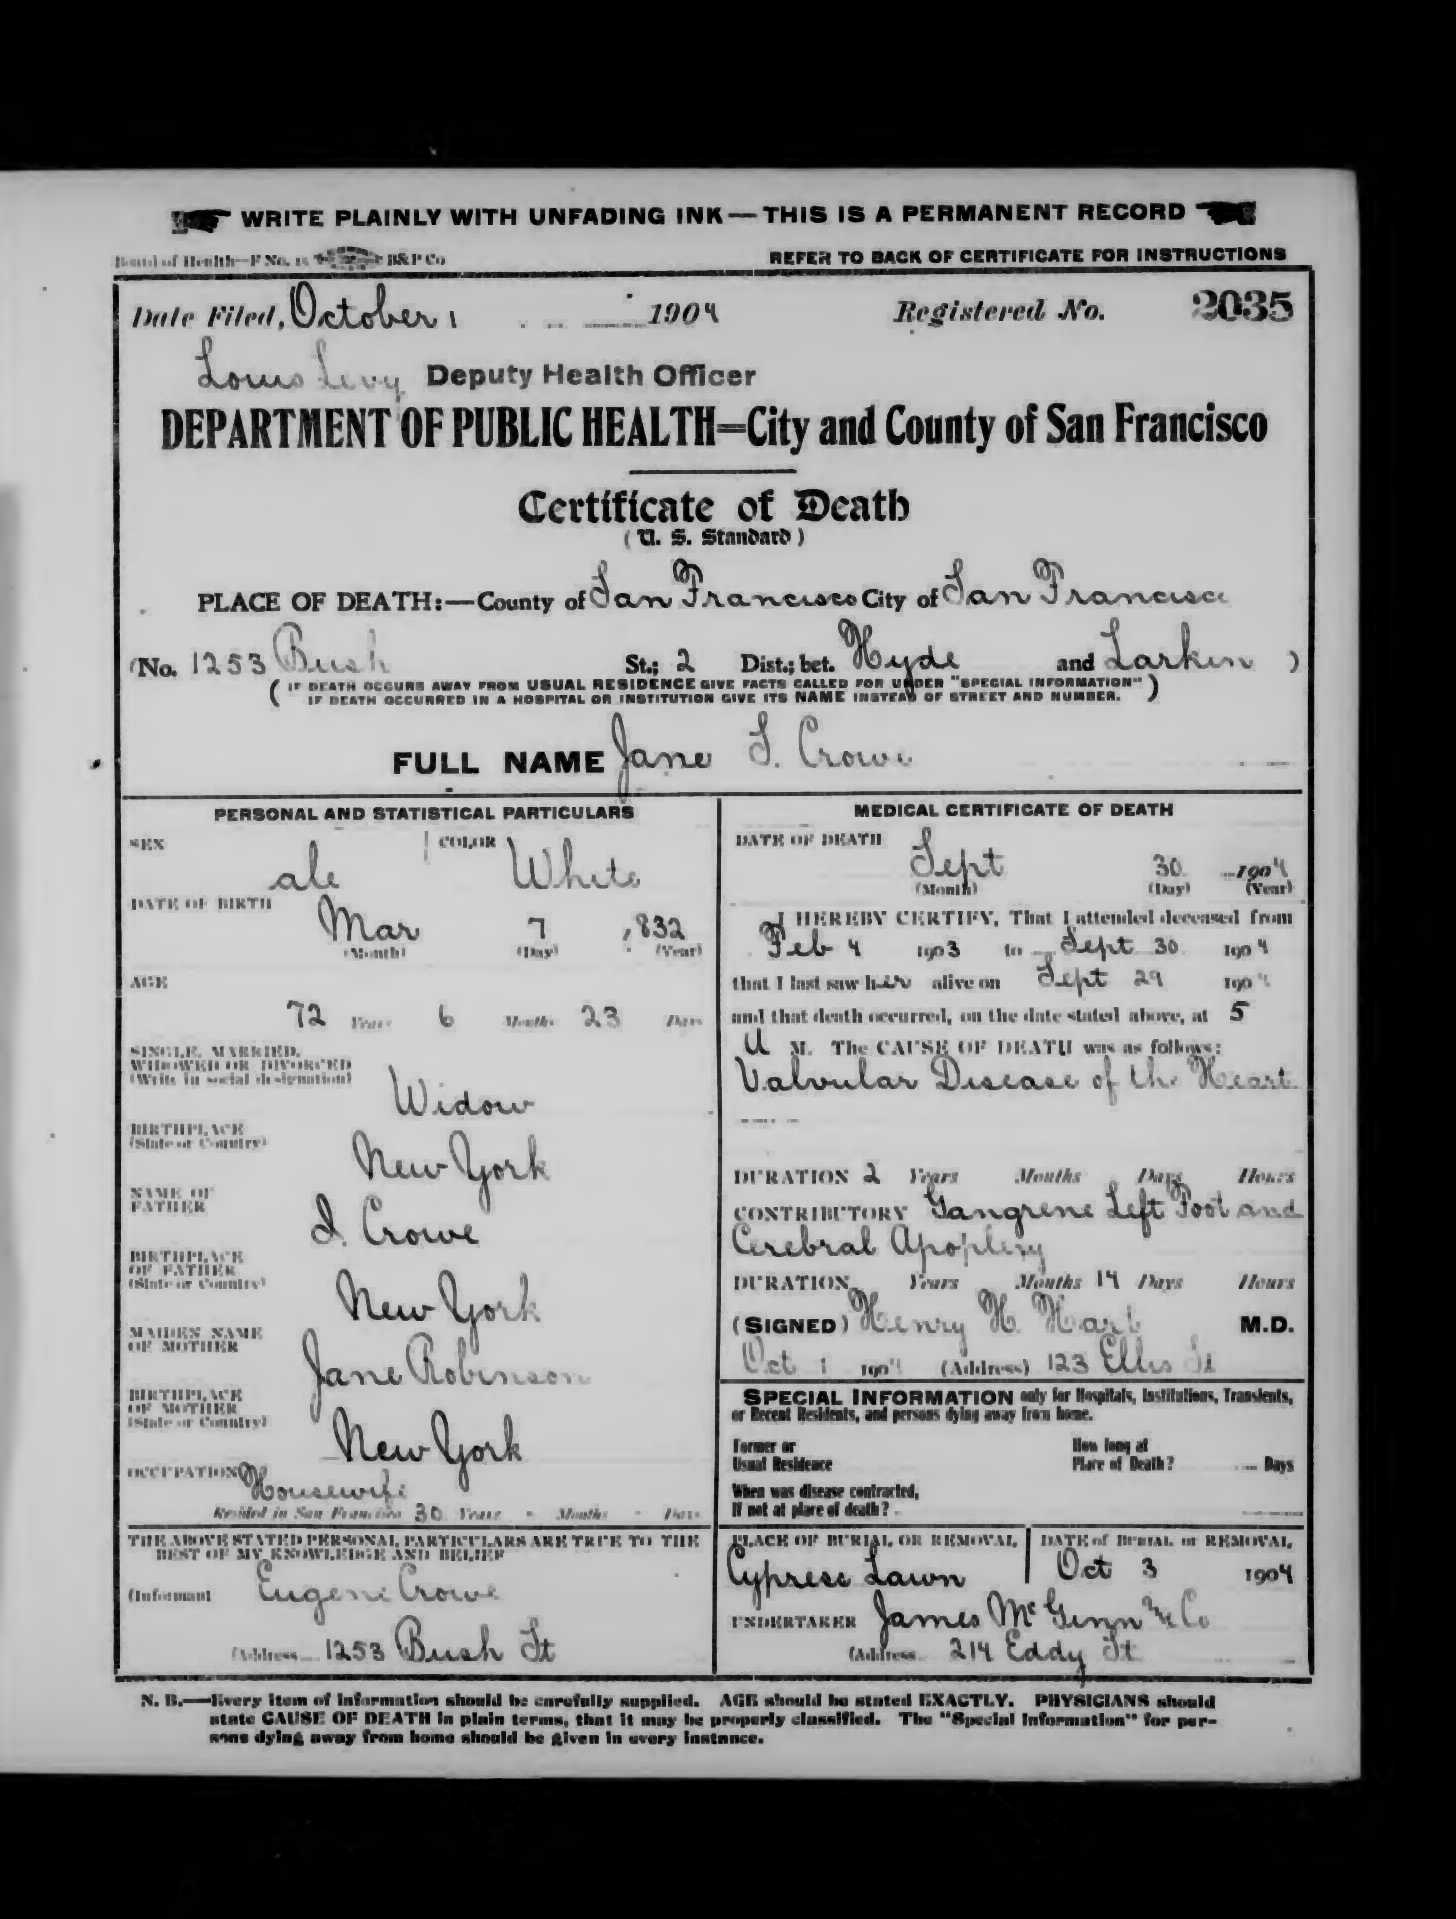 WRITE PLAINLY WITH UNFADING INK — THIS IS A PERMANENT RECORD
Board of Health—F No. 15 B&P Co
REFER TO BACK OF CERTIFICATE FOR INSTRUCTIONS
Date Filed, October 1 1904 Registered No. 2035
Louis Levy Deputy Health Officer
DEPARTMENT OF PUBLIC HEALTH=City and County of San Francisco
Certificate of Death
(U. S. Standard)
PLACE OF DEATH:—County of San Francisco City of San Francisco
(No. 1253 Bush St.; 2 Dist.; bet. Hyde and Larkin )
( IF DEATH OCCURS AWAY FROM USUAL RESIDENCE GIVE FACTS CALLED FOR UNDER "SPECIAL INFORMATION" )
IF DEATH OCCURRED IN A HOSPITAL OR INSTITUTION GIVE ITS NAME INSTEAD OF STREET AND NUMBER.
FULL NAME Jane S. Crowe
PERSONAL AND STATISTICAL PARTICULARS
SEX ale COLOR White
DATE OF BIRTH
Mar 7 ,832
(Month) (Day) (Year)
AGE
72 Years 6 Months 23 Days
SINGLE, MARRIED,
WIDOWED OR DIVORCED
(Write in social designation)
Widow
BIRTHPLACE
(State or Country)
New York
NAME OF
FATHER
I. Crowe
BIRTHPLACE
OF FATHER
(State or Country)
New York
MAIDEN NAME
OF MOTHER
Jane Robinson
BIRTHPLACE
OF MOTHER
(State or Country)
New York
OCCUPATION
Housewife
Resided in San Francisco 30 Years - Months - Days
THE ABOVE STATED PERSONAL PARTICULARS ARE TRUE TO THE
BEST OF MY KNOWLEDGE AND BELIEF
(Informant Eugene Crowe
(Address 1253 Bush St
MEDICAL CERTIFICATE OF DEATH
DATE OF DEATH
Sept 30 1904
(Month) (Day) (Year)
I HEREBY CERTIFY, That I attended deceased from
Feb 4 1903 to Sept 30 1904
that I last saw her alive on Sept 29 1904
and that death occurred, on the date stated above, at 5
a M. The CAUSE OF DEATH was as follows:
Valvular Disease of the Heart
DURATION 2 Years Months Days Hours
CONTRIBUTORY Gangrene Left Foot and
Cerebral Apoplexy
DURATION Years Months 14 Days Hours
(SIGNED) Henry H. Hart M.D.
Oct 1 1904 (Address) 123 Ellis St
SPECIAL INFORMATION only for Hospitals, Institutions, Transients,
or Recent Residents, and persons dying away from home.
Former or
Usual Residence
How long at
Place of Death? Days
When was disease contracted,
If not at place of death?
PLACE OF BURIAL OR REMOVAL
Cypress Lawn
DATE of BURIAL or REMOVAL
Oct 3 1904
UNDERTAKER James McGinn & Co
(Address 214 Eddy St
N. B.—Every item of information should be carefully supplied. AGE should be stated EXACTLY. PHYSICIANS should
state CAUSE OF DEATH in plain terms, that it may be properly classified. The "Special Information" for per-
sons dying away from home should be given in every instance.